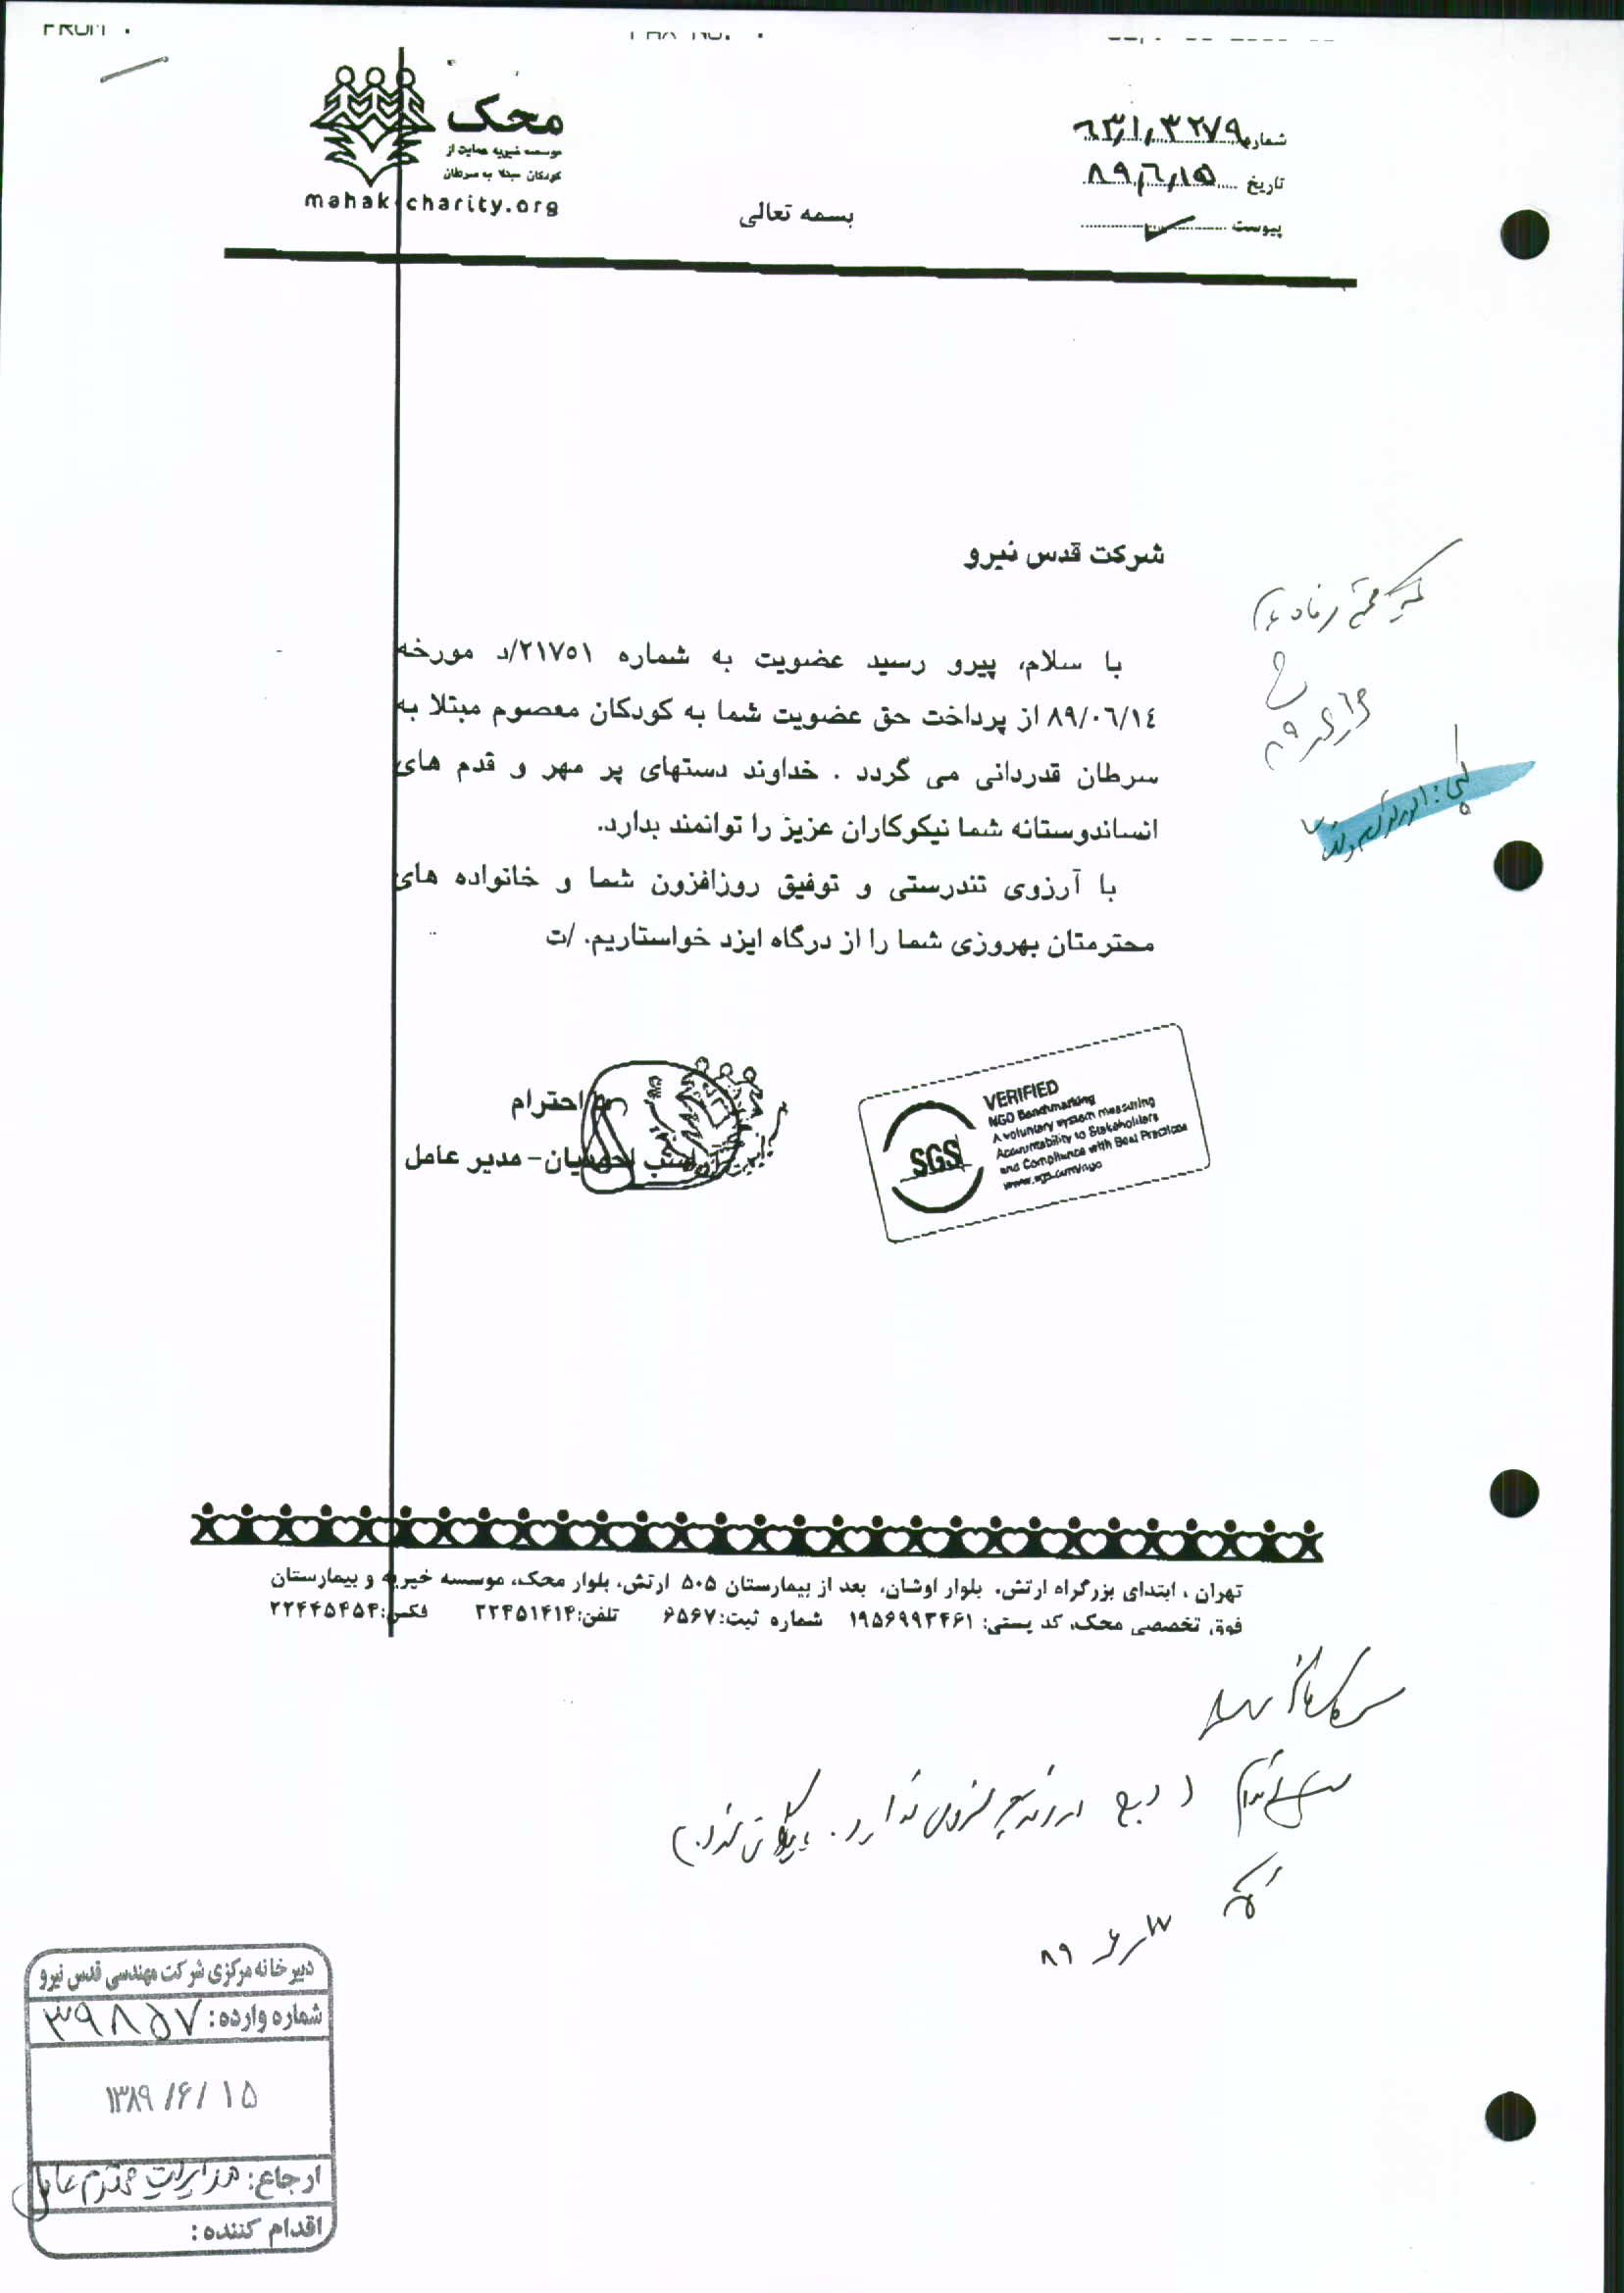 محک
موسسه خیریه حمایت از
کودکان مبتلا به سرطان
mahak-charity.org
بسمه تعالی
شماره ۶۳/۱/۳۲۷۹
تاریخ ۸۹/٦/۱۵
پیوست
شرکت قدس نیرو
با سلام، پیرو رسید عضویت به شماره ۲۱۷۵۱/د مورخه
۸۹/۰٦/۱٤ از پرداخت حق عضویت شما به کودکان معصوم مبتلا به
سرطان قدردانی می گردد . خداوند دستهای پر مهر و قدم های
انساندوستانه شما نیکوکاران عزیز را توانمند بدارد.
با آرزوی تندرستی و توفیق روزافزون شما و خانواده های
محترمتان بهروزی شما را از درگاه ایزد خواستاریم. /ت
با احترام
احمدیان - مدیر عامل
SGS
VERIFIED
NGO Benchmarking
A voluntary system measuring
Accountability to Stakeholders
and Compliance with Best Practices
www.sgs.com/ngo
تهران ، ابتدای بزرگراه ارتش، بلوار اوشان، بعد از بیمارستان ۵۰۵ ارتش، بلوار محک، موسسه خیریه و بیمارستان
فوق تخصصی محک، کد پستی: ۱۹۵۶۹۹۳۴۶۱ شماره ثبت: ۶۵۶۷ تلفن: ۲۲۴۵۱۴۱۴ فکس: ۲۲۴۴۵۴۵۴
۸۹
دبیرخانه مرکزی شرکت مهندسی قدس نیرو
شماره وارده: ۳۹۸۵۷
۱۳۸۹/۶/۱۵
ارجاع: مدیریت محترم عامل
اقدام کننده: